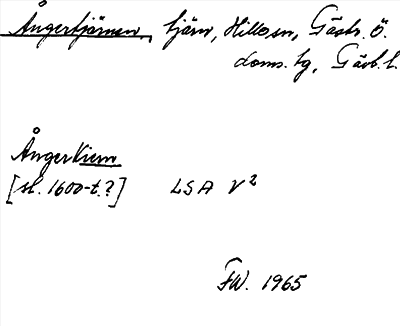 Ångertjärnen, tjärn, Hille sn, Gästr. Ö.
doms. hg, Gävl. l.
Ånger Kiern
[sl. 1600-t.?] LSA V²
FW. 1965